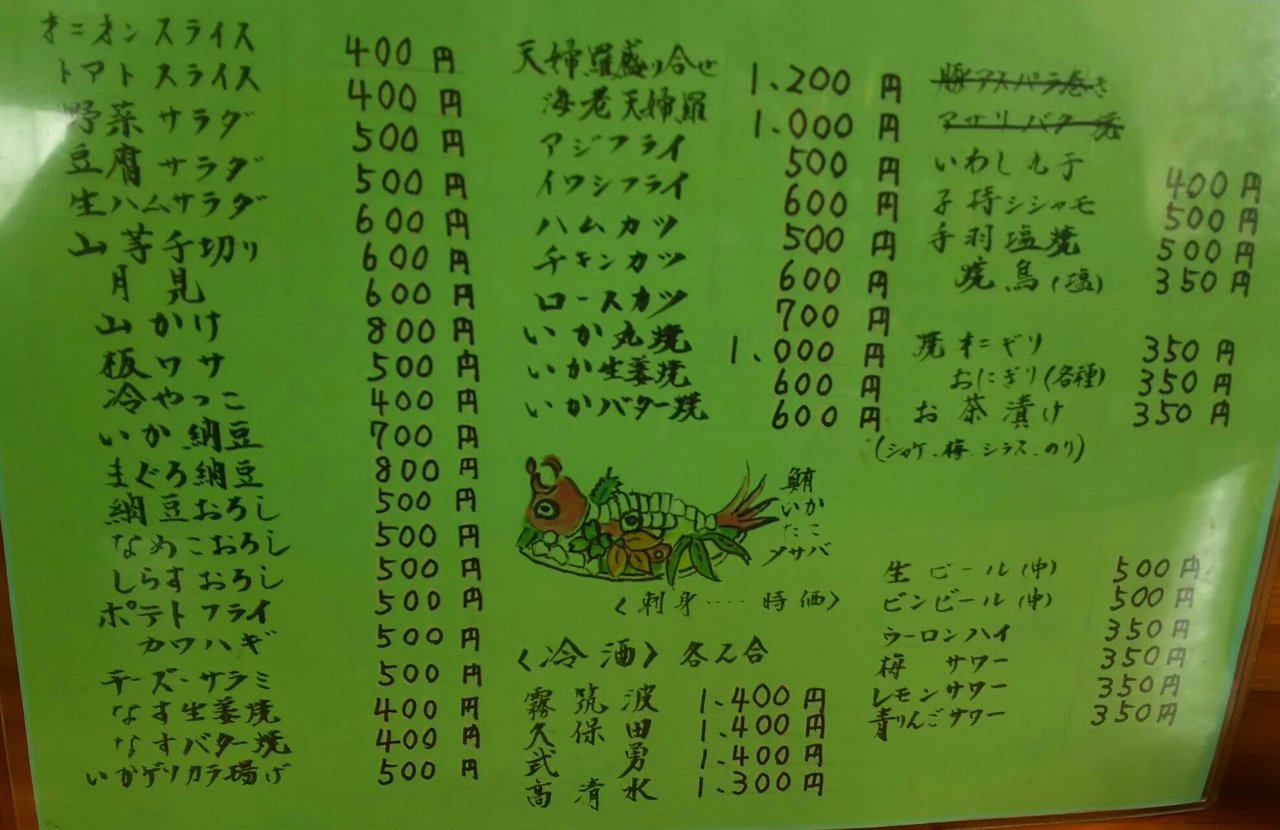 オニオンスライス 400円
トマトスライス 400円
野菜サラダ 500円
豆腐サラダ 500円
生ハムサラダ 600円
山芋千切り 600円
月見 600円
山かけ 800円
板ワサ 500円
冷やっこ 400円
いか納豆 700円
まぐろ納豆 800円
納豆おろし 500円
なめこおろし 500円
しらすおろし 500円
ポテトフライ 500円
カワハギ 500円
チーズ・サラミ 500円
なす生姜焼 400円
なすバター焼 400円
いかゲソカラ揚げ 500円
天婦羅盛り合せ 1.200円
海老天婦羅 1.000円
アジフライ 500円
イワシフライ 600円
ハムカツ 500円
チキンカツ 600円
ロースカツ 700円
いか丸焼 1.000円
いか生姜焼 600円
いかバター焼 600円
鮪
いか
たこ
〆サバ
〈刺身‥‥時価〉
〈冷酒〉各二合
霧筑波 1.400円
久保田 1.400円
武勇 1.400円
高清水 1.300円
豚アスパラ巻き
アサリバター焼
いわし丸干 400円
子持シシャモ 500円
手羽塩焼 500円
焼鳥(塩) 350円
焼オニギリ 350円
おにぎり(各種) 350円
お茶漬け 350円
(シャケ、梅、シラス、のり)
生ビール(中) 500円
ビンビール(中) 500円
ウーロンハイ 350円
梅サワー 350円
レモンサワー 350円
青りんごサワー 350円